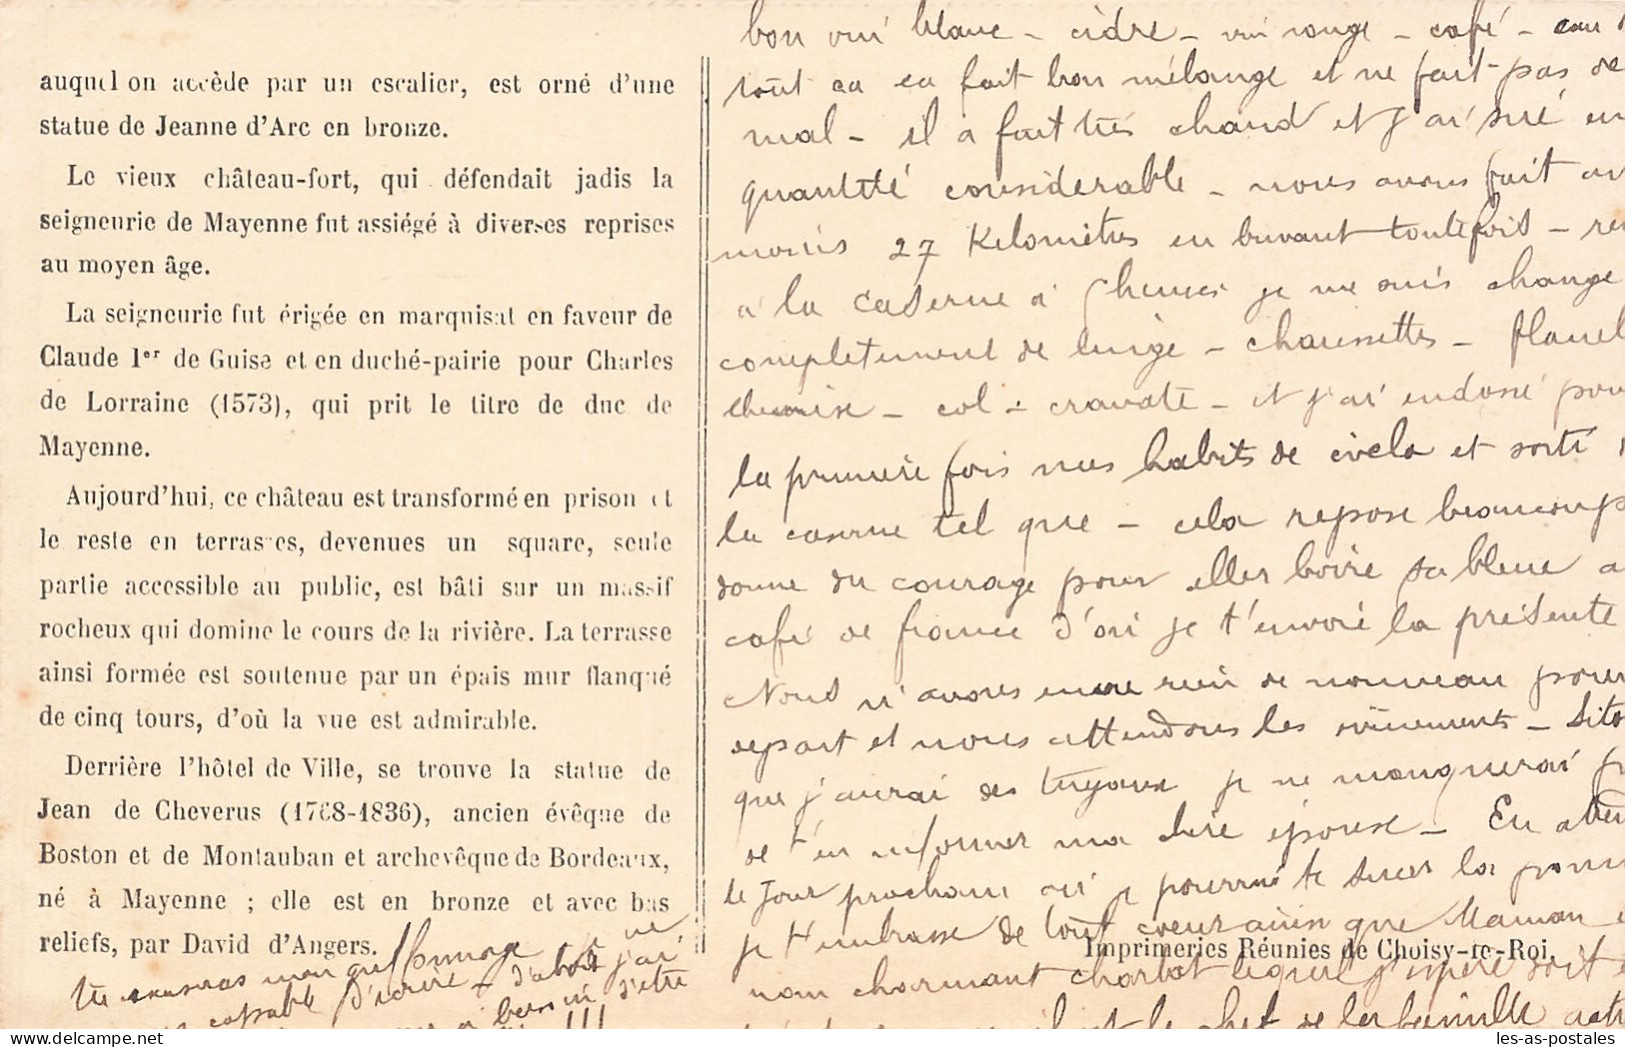 auquel on accède par un escalier, est orné d'une
statue de Jeanne d'Arc en bronze.
Le vieux château-fort, qui défendait jadis la
seigneurie de Mayenne fut assiégé à diverses reprises
au moyen âge.
La seigneurie fut érigée en marquisat en faveur de
Claude 1er de Guise et en duché-pairie pour Charles
de Lorraine (1573), qui prit le titre de duc de
Mayenne.
Aujourd'hui, ce château est transformé en prison et
le reste en terrasses, devenues un square, seule
partie accessible au public, est bâti sur un massif
rocheux qui domine le cours de la rivière. La terrasse
ainsi formée est soutenue par un épais mur flanqué
de cinq tours, d'où la vue est admirable.
Derrière l'hôtel de Ville, se trouve la statue de
Jean de Cheverus (1768-1836), ancien évêque de
Boston et de Montauban et archevêque de Bordeaux,
né à Mayenne ; elle est en bronze et avec bas
reliefs, par David d'Angers.
tu excuseras mon griffonnage
capable d'écrire - d'abord j'ai
besoin d'être
bon vin blanc - cidre - vin rouge - café - eau
tout ca ca fait bon mélange et ne fait pas de
mal - il a fait très chaud et j'ai sué en
quantité considerable - nous avons fait au
moins 27 Kilomètres en buvant toutefois -
à la caserne à je me suis change
completement de linge - chaussettes - flanel
chemise - col - cravate - et j'ai endossé pour
la première fois mes habits de civclo et sorti
la caserne tel que - cela repose beaucoup
donne du courage pour aller boire sa bleue a
café de france d'où je t'envoie la présente
Nous n'avons encore rien de nouveau pour
depart et nous attendons les évènements - Sitô
que j'aurai des tuyaux je ne manquerai p
de t'en informer ma chère épouse - En atten
le jour prochain où je pourrai te sucer la
je t'embrasse de tout coeur ainsi que Maman
mon charmant lequel j'espère soit
le chef de la famille
Imprimeries Réunies de Choisy-le-Roi.
les-as-postales